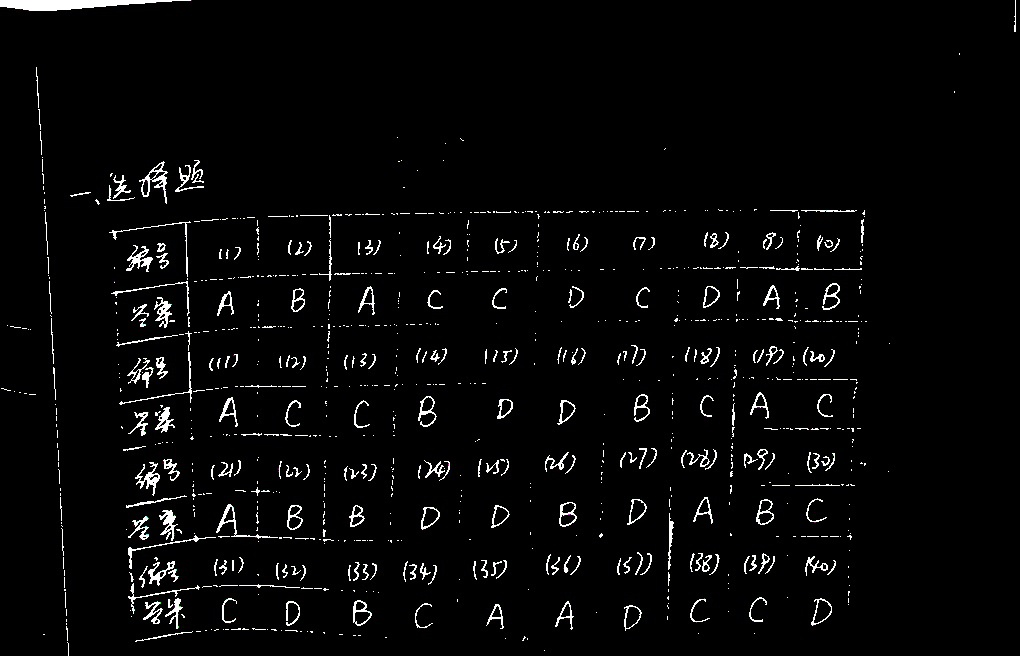 一、选择题
编号 (1) (2) (3) (4) (5) (6) (7) (8) (9) (10)
答案 A B A C C D C D A B
编号 (11) (12) (13) (14) (15) (16) (17) (18) (19) (20)
答案 A C C B D D B C A C
编号 (21) (22) (23) (24) (25) (26) (27) (28) (29) (30)
答案 A B B D D B D A B C
编号 (31) (32) (33) (34) (35) (36) (37) (38) (39) (40)
答案 C D B C A A D C C D